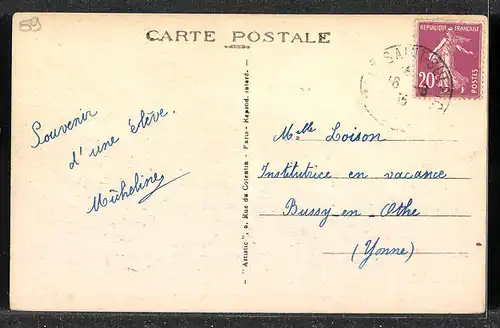 59
CARTE POSTALE
REPUBLIQUE FRANÇAISE
20c
POSTES
Souvenir
d'une élève.
Micheline
"Artistic", 6, Rue de Corentin - Paris - Reprod. interd.
Melle Loison
Institutrice en vacance
Bussy-en-Othe
(Yonne)